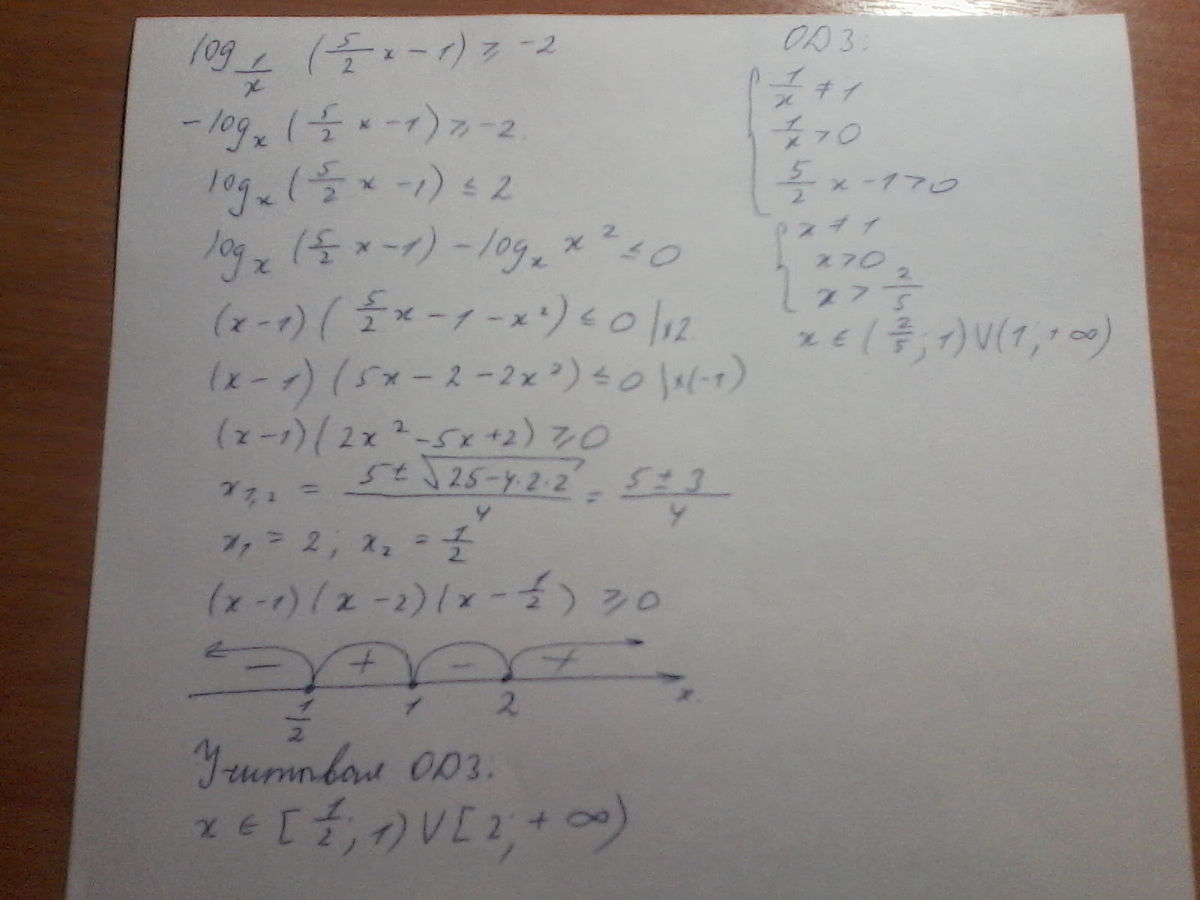 log_{1/x} (5/2 x - 1) ≥ -2
-log_x (5/2 x - 1) ≥ -2
log_x (5/2 x - 1) ≤ 2
log_x (5/2 x - 1) - log_x x² ≤ 0
(x - 1)(5/2 x - 1 - x²) ≤ 0 |x2
(x - 1)(5x - 2 - 2x²) ≤ 0 |x(-1)
(x - 1)(2x² - 5x + 2) ≥ 0
x_{1,2} = (5 ± √(25 - 4·2·2))/4 = (5 ± 3)/4
x₁ = 2; x₂ = 1/2
(x - 1)(x - 2)(x - 1/2) ≥ 0
- + - +
1/2 1 2 x
Учитывая ОДЗ:
x ∈ [1/2; 1) V [2; +∞)
ОДЗ:
1/x ≠ 1
1/x > 0
5/2 x - 1 > 0
x ≠ 1
x > 0
x > 2/5
x ∈ (2/5; 1) V (1; +∞)